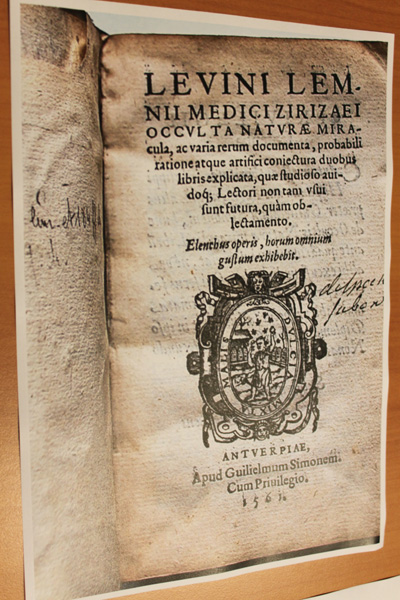 LEVINI LEM-
NII MEDICI ZIRIZAEI
OCCVLTA NATVRÆ MIRA-
cula, ac varia rerum documenta, probabili
ratione atque artifici coniectura duobus
libris explicata, quæ studioso aui-
doq; Lectori non tam vsui
sunt futura, quàm ob-
lectamento.
Elenchus operis, horum omnium
gustum exhibebit.
ANTVERPIAE,
Apud Guilielmum Simonem.
Cum Priuilegio.
1561.